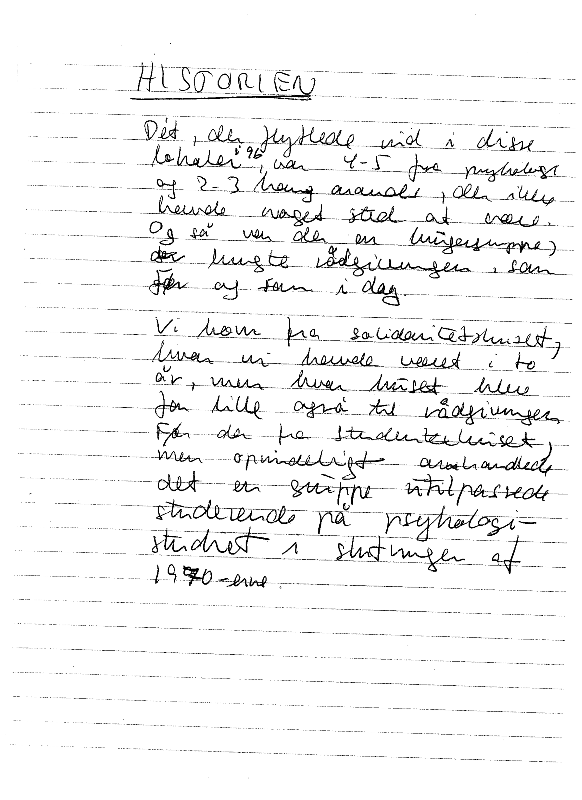 HISTORIEN
Dét, der flyttede ind i disse
lokaler i '96, var 4-5 fra psykologi
og 2-3 herng , der ikke
havde noget sted at være.
Og så var der en brugergruppe,
der brugte rådgivningen, som
før og som i dag.
Vi kom fra solidaritetshuset,
hvor vi havde været i to
år, men hvor huset blev
for lille også til rådgivningen
Før der fra Studenterhuset,
men oprindeligt omhandlede
det en gruppe utilpassede
studerende på psykologi-
studiet i slutningen af
1970-erne